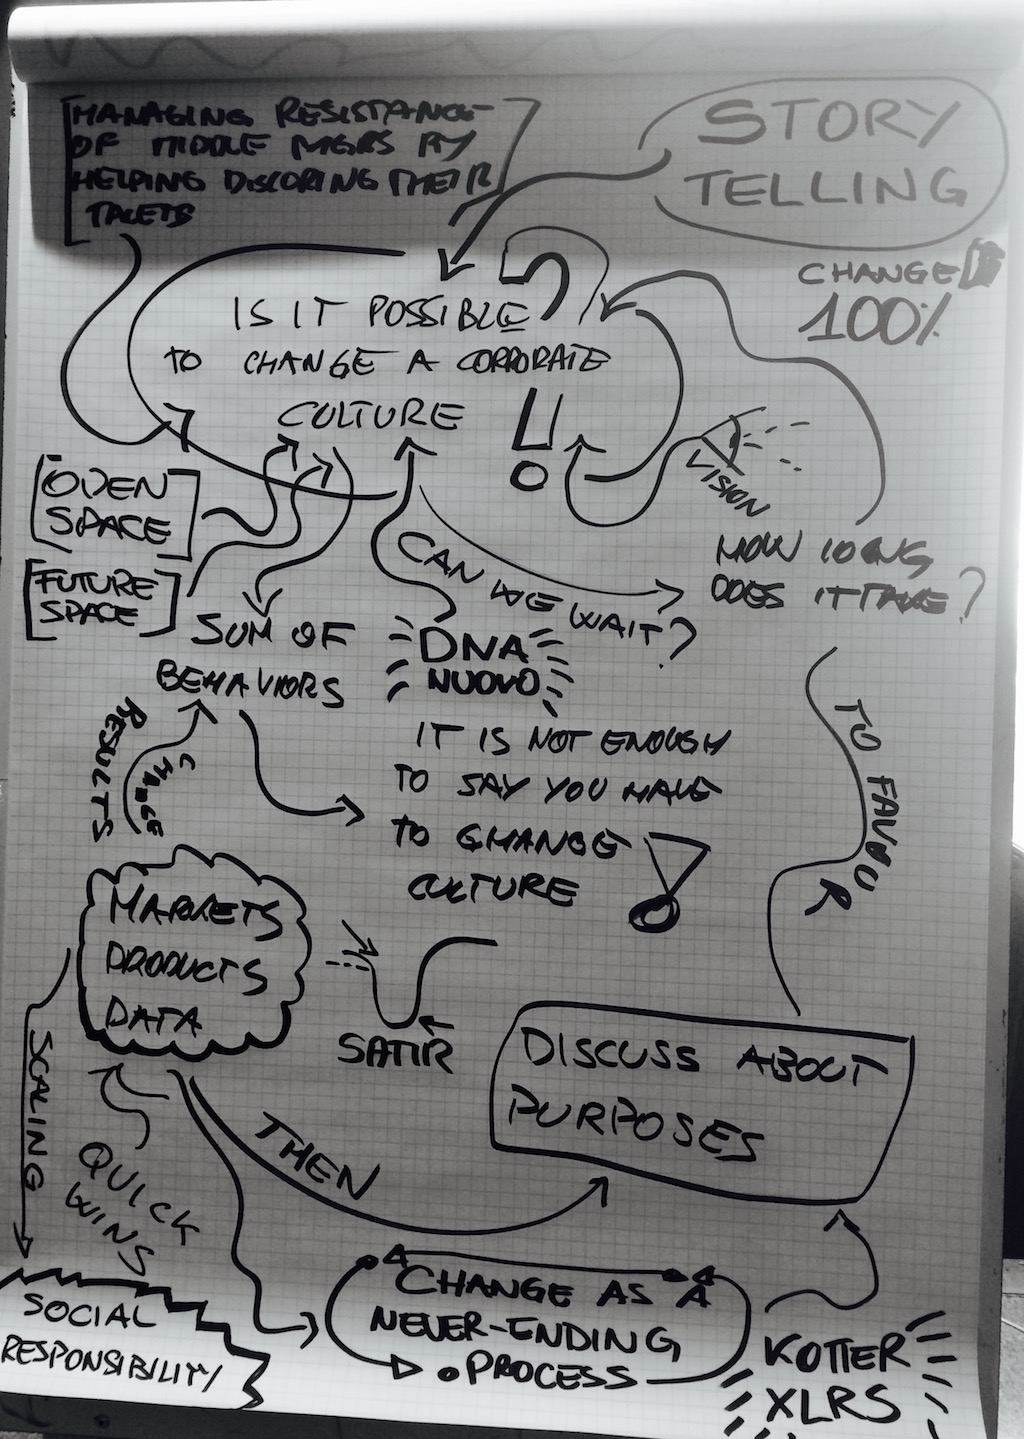 MANAGING RESISTANCE
OF MIDDLE MGRS BY
HELPING DISCORING THEIR
TALETS
STORY
TELLING
CHANGE
100%
IS IT POSSIBLE?
TO CHANGE A CORPORATE
CULTURE !
VISION
OPEN
SPACE
FUTURE
SPACE
CAN WE WAIT?
HOW LONG
DOES IT TAKE?
SUM OF
BEHAVIORS
DNA
NUOVO
RESULTS
CHANGE
IT IS NOT ENOUGH
TO SAY YOU HAVE
TO CHANGE
CULTURE !
TO FAVOUR
MARKETS
PRODUCTS
DATA
SATIR
DISCUSS ABOUT
PURPOSES
SCALING
QUICK
WINS
THEN
SOCIAL
RESPONSIBILITY
CHANGE AS A
NEVER-ENDING
PROCESS
KOTTER
XLRS